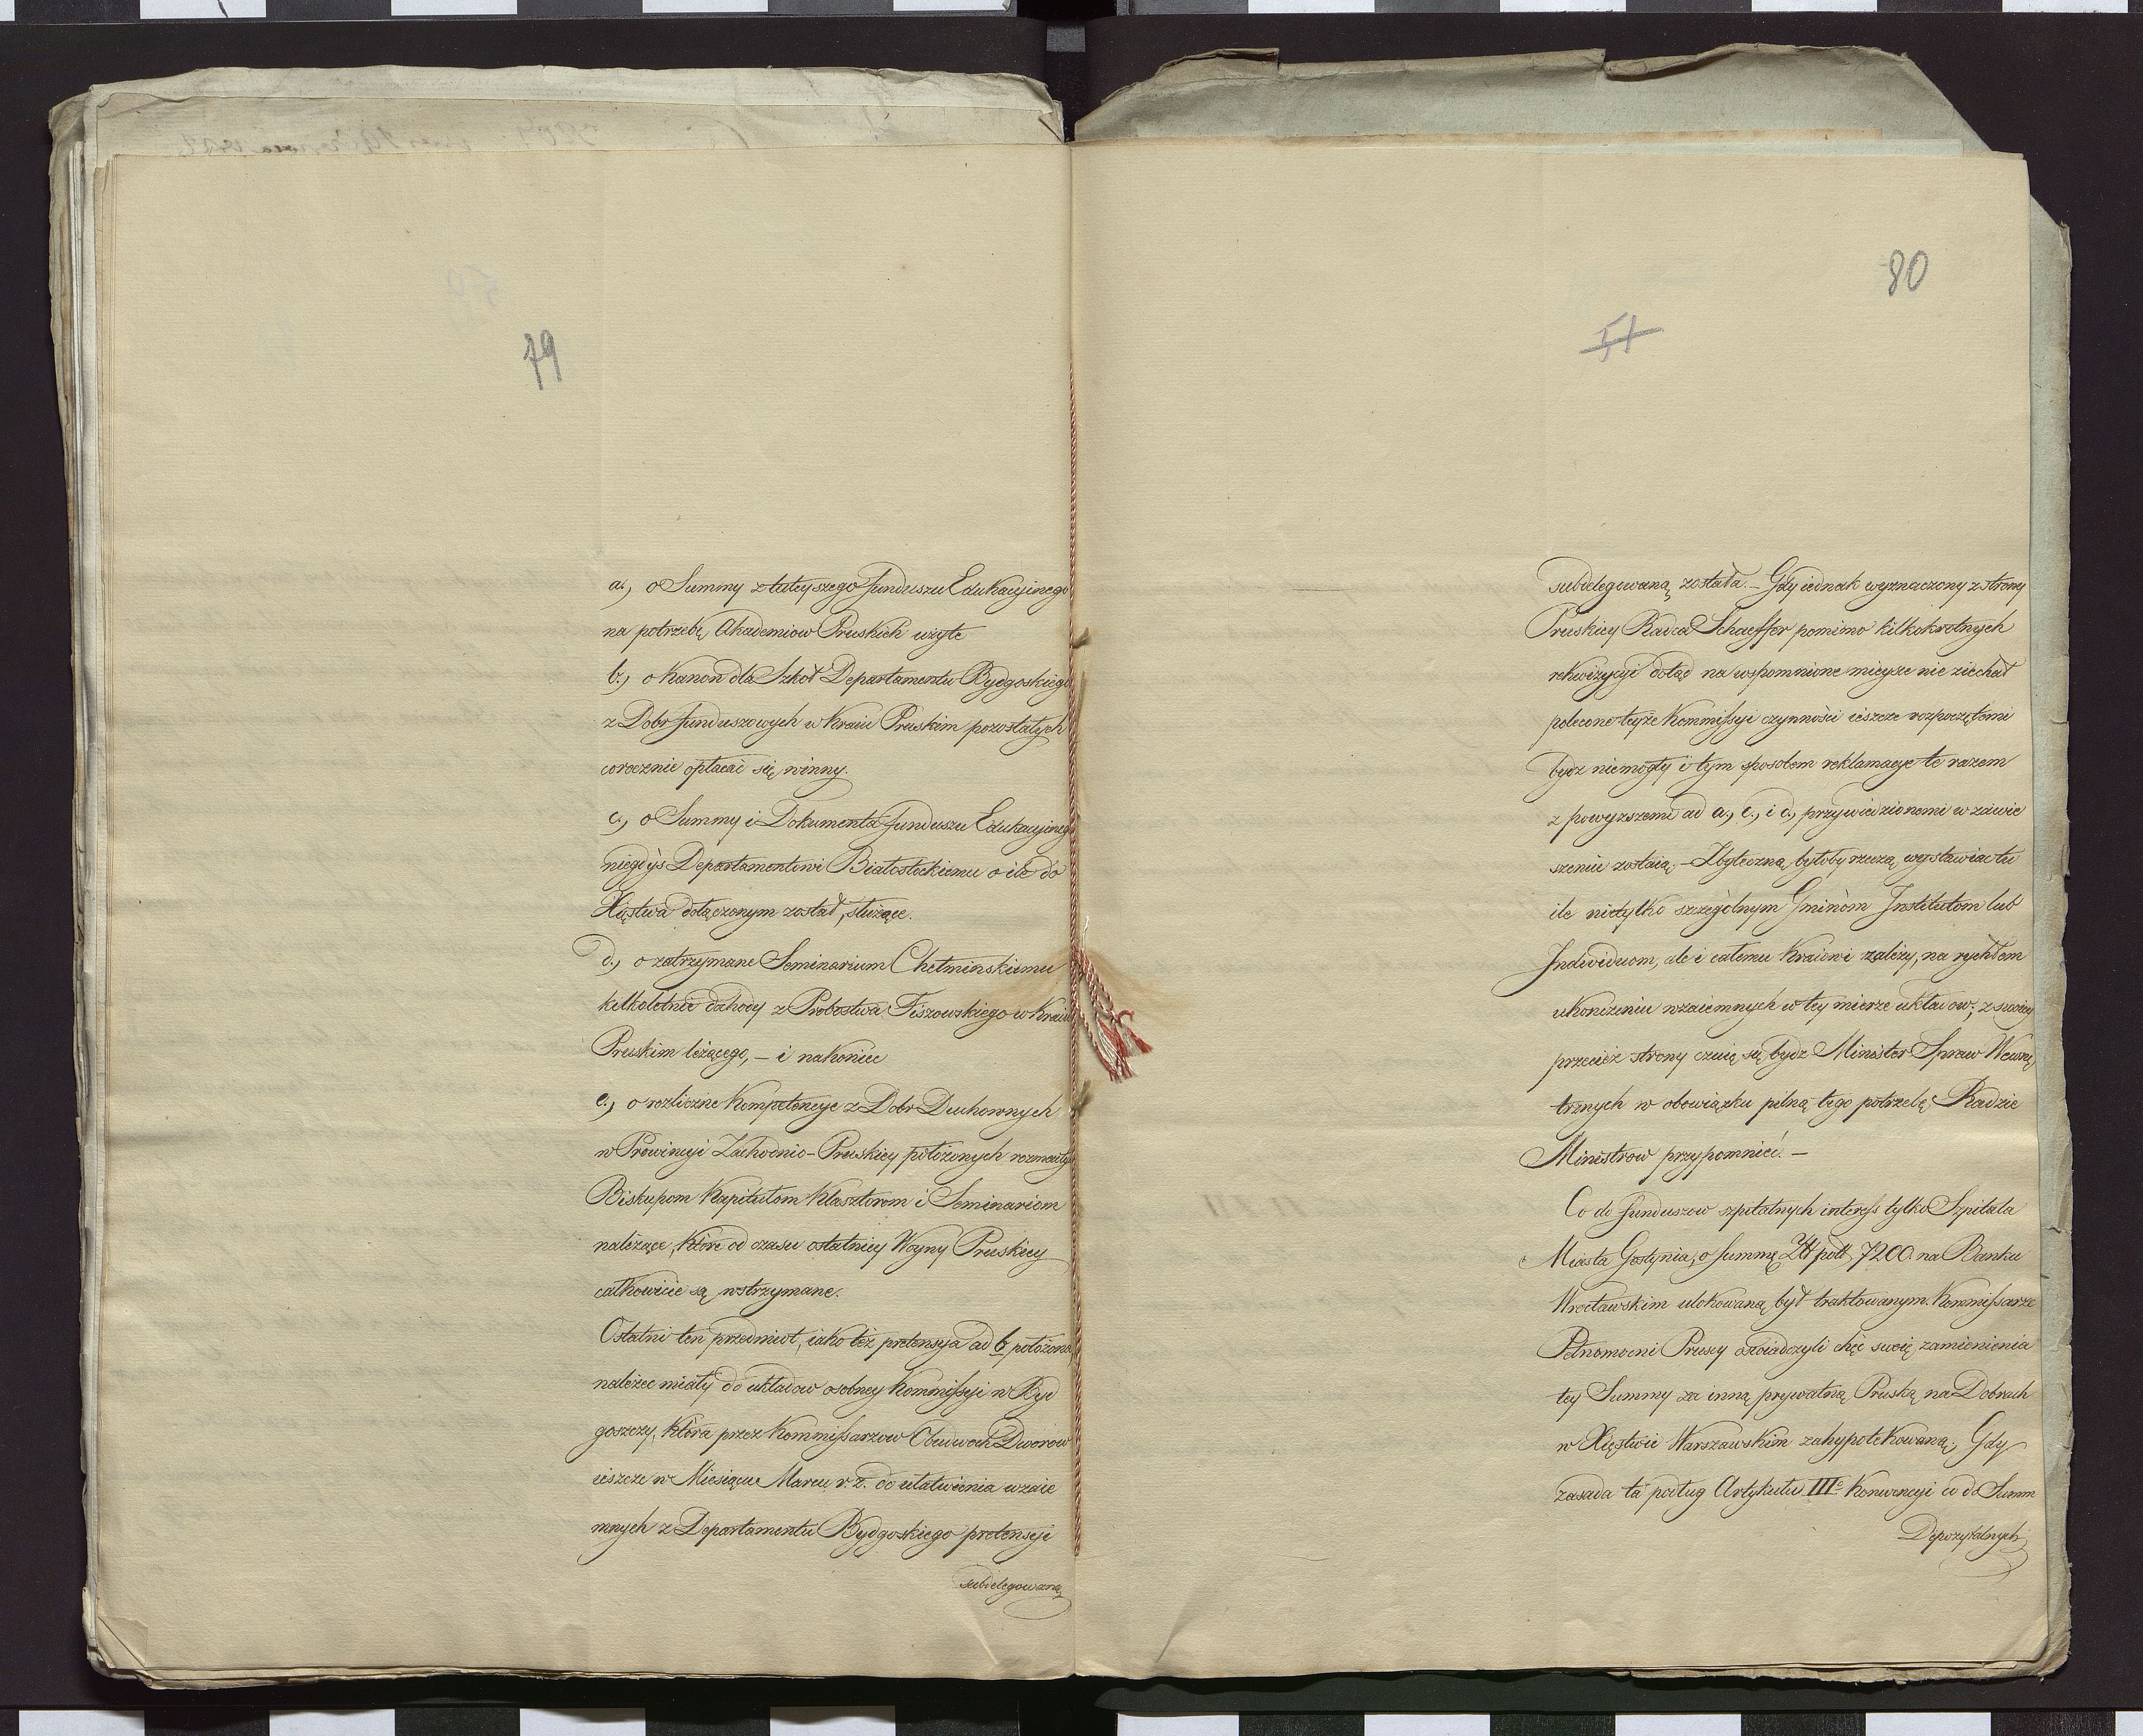 79
a., o Summy z tuteyszego funduszu Edukacyinego
na potrzebę Akademiow Pruskich użyte
b., o Kanon dla Szkoł Departamentu Bydgoskiego
z Dobr funduszowych w Kraiu Pruskim pozostałych
corocznie opłacać się winny.
c., o Summy i Dokumenta funduszu Edukacyinego
niegdyś Departamentowi Białostockiemu o ile do
Xięstwa dołączonym został, służące.
d., o zatrzymane Seminarium Chełmińskiemu
kilkoletnie dochody z Probostwa Fiszowskiego w Kraiu
Pruskim leżącego, – i nakoniec
e., o rozliczne Kompetencye z Dobr Duchownych
w Prowincyi Zachodnio-Pruskiey położonych rozmaitym
Biskupom Kapitułom Klasztorom i Seminariom
należące, które od czasu ostatniey Woyny Pruskiey
całkowicie są wstrzymane.
Ostatni ten przedmiot, iako też pretensya ad b położona,
należec miały do układow osobney Kommissyi w Byd
goszczy, która przez Kommissarzow Obudwoch Dworów
ieszcze w Miesiącu Marcu r. z. do ułatwienia wzaie
mnych z Departamentu Bydgoskiego pretensyi
subdelegowaną
80
51
subdelegowaną została. – Gdy iednak wyznaczony z strony
Pruskiey Radca Schaeffer pomimo kilkokrotnych
rekwizycyi dotąd na wspomnione mieysce nie ziechał
polecone teyże Kommissyi czynności ieszcze rozpoczętemi
bydz niemogły i tym sposobem reklamacye te razem
z powyzszemi ad a., c., i d., przywiedzionemi w zawie
szeniu zostaią. – Zbyteczną byłoby rzeczą wystawiac tu
ile nietylko szczególnym Gminóm Institutom lub
Individuom, ale i całemu Kraiowi zależy, na rychłem
ukończeniu wzaiemnych w tey mierze układow; z swoiey
przecież strony czuię się bydz Minister Spraw Wewnę
trznych w obowiązku pilną tego potrzebę Radzie
Ministrow przypomnieć. –
Co do funduszow szpitalnych interess tylko Szpitala
Miasta Gostynia, o Summę Zł pol 7200. na Banku
Wrocławskim ulokowaną był traktowanym. Kommissarze
Pełnomocni Pruscy oświadczyli chęc swoię zamienienia
tey Summy za inną prywatną Pruską na Dobrach
w Xięstwie Warszawskim zahypotekowaną, Gdy
zasada ta podług Artykułu IIIᵒ Konwencyi co do Summ
Depozytalnych